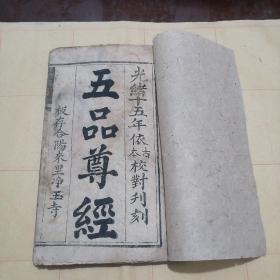 光緒十五年依古本校對刋刻
五品尊經
板存合陽來里净玉寺